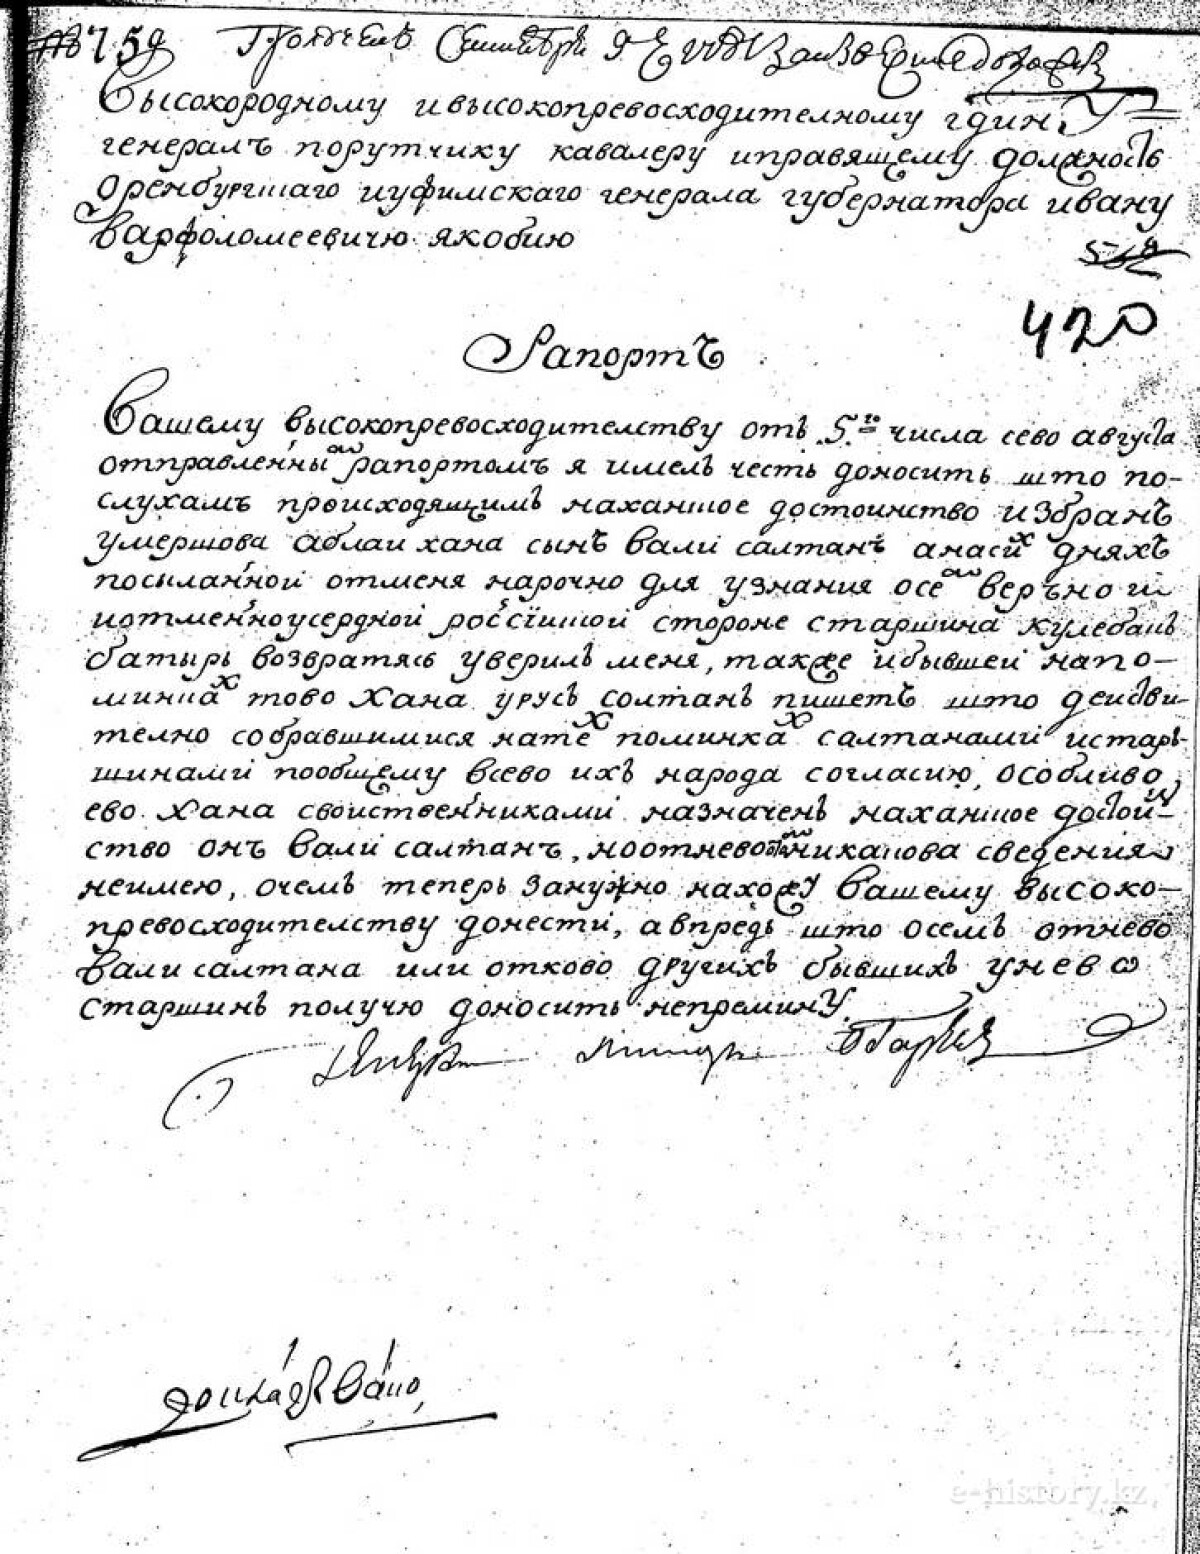 № 759 Получен Сентября 9
Высокородному и высокопревосходителному гдину
генералъ порутчику кавалеру иправящему должность
Оренбургшаго иуфимскаго генерала губернатора ивану
варфоломеевичю якобию
420
Рапортъ
Вашему высокопревосходителству отъ 5го числа сево августа
отправленны рапортомъ я имелъ честь доносить што по-
слухамъ происходящимъ наханшое достоинство избранъ
умершова аблаи хана сынъ вали салтанъ анасих дняхъ
посыланной отменя нарочно для узнания осем верьно и
иотменноусердной россїишой стороне старшина кулебакъ
батырь возвратясь уверилъ меня, также ибывшей напо-
минках тово хана урусъ солтанъ пишетъ што деистви-
телно собравшимися натех поминках салтанами истарь-
шинами пообщему всево ихъ народа согласию, особливо
ево хана своиственниками назначенъ наханшое достоин-
ство онъ вали салтанъ, ноотнево никакова сведения
неимею, очемъ теперь занужно нахожу вашему высоко-
превосходителству донести, авпредь што осемъ отнево
вали салтана или отково другихъ бывшихъ унево
старшинъ получю доносить непремину.
e-history.kz